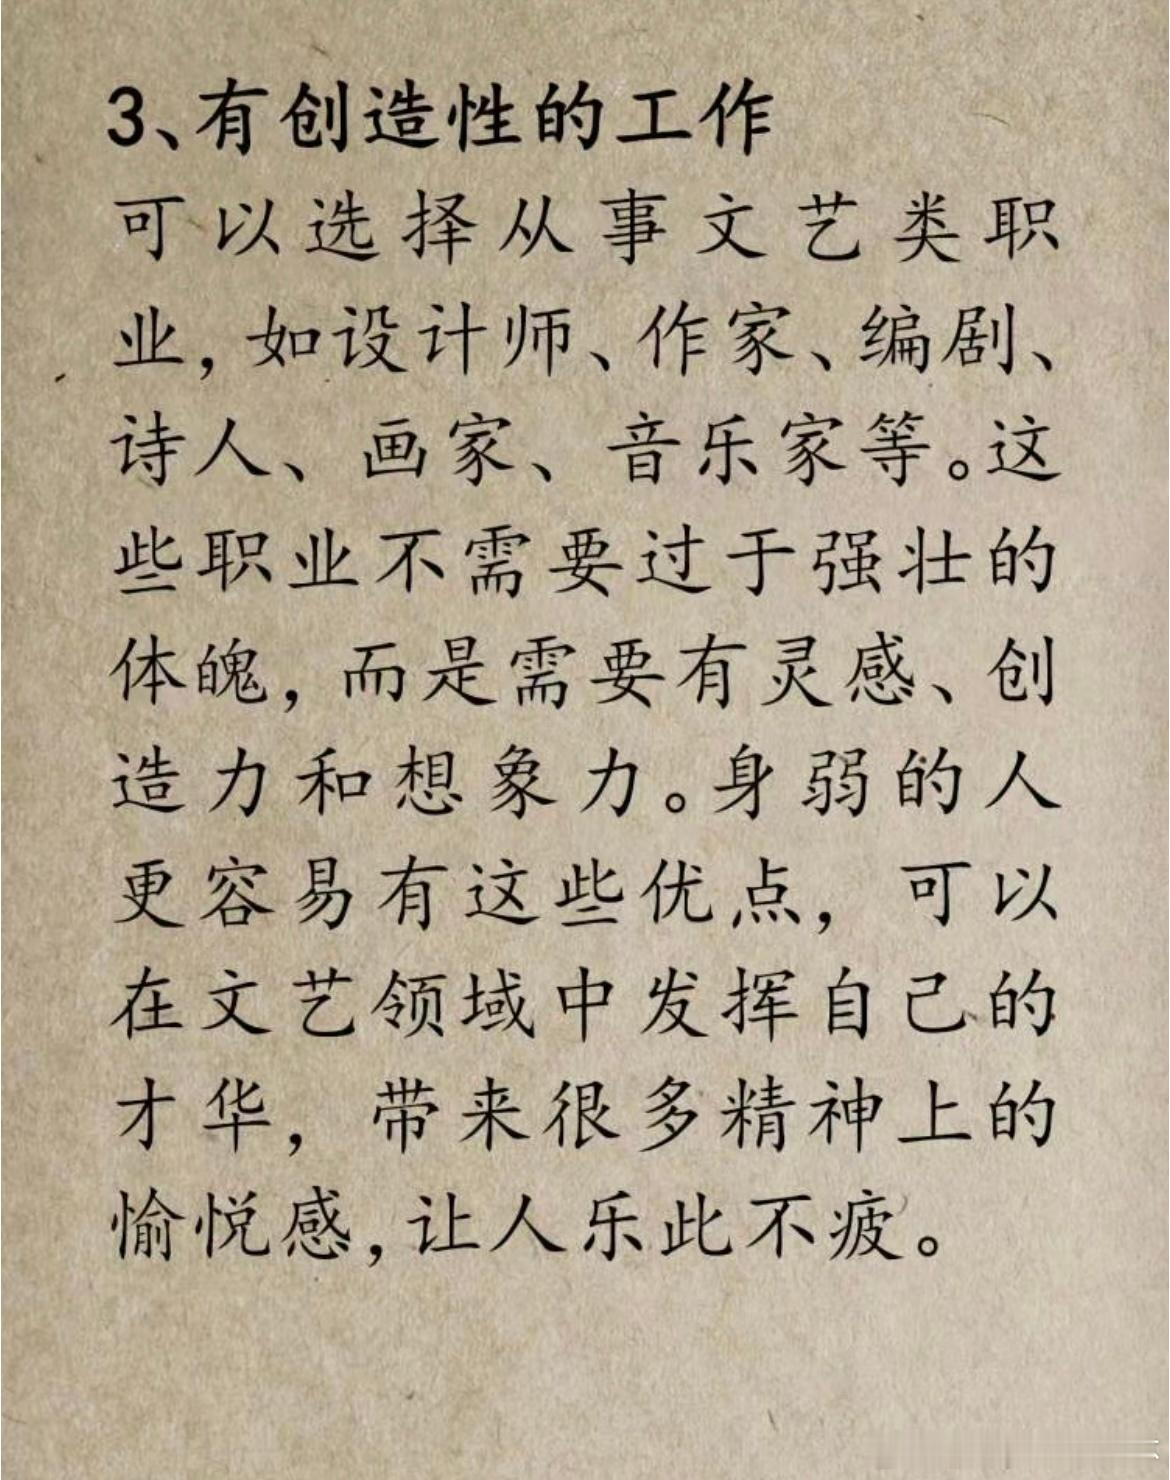 3、有创造性的工作
可以选择从事文艺类职
业,如设计师、作家、编剧、
诗人、画家、音乐家等。这
些职业不需要过于强壮的
体魄,而是需要有灵感、创
造力和想象力。身弱的人
更容易有这些优点,可以
在文艺领域中发挥自己的
才华,带来很多精神上的
愉悦感,让人乐此不疲。